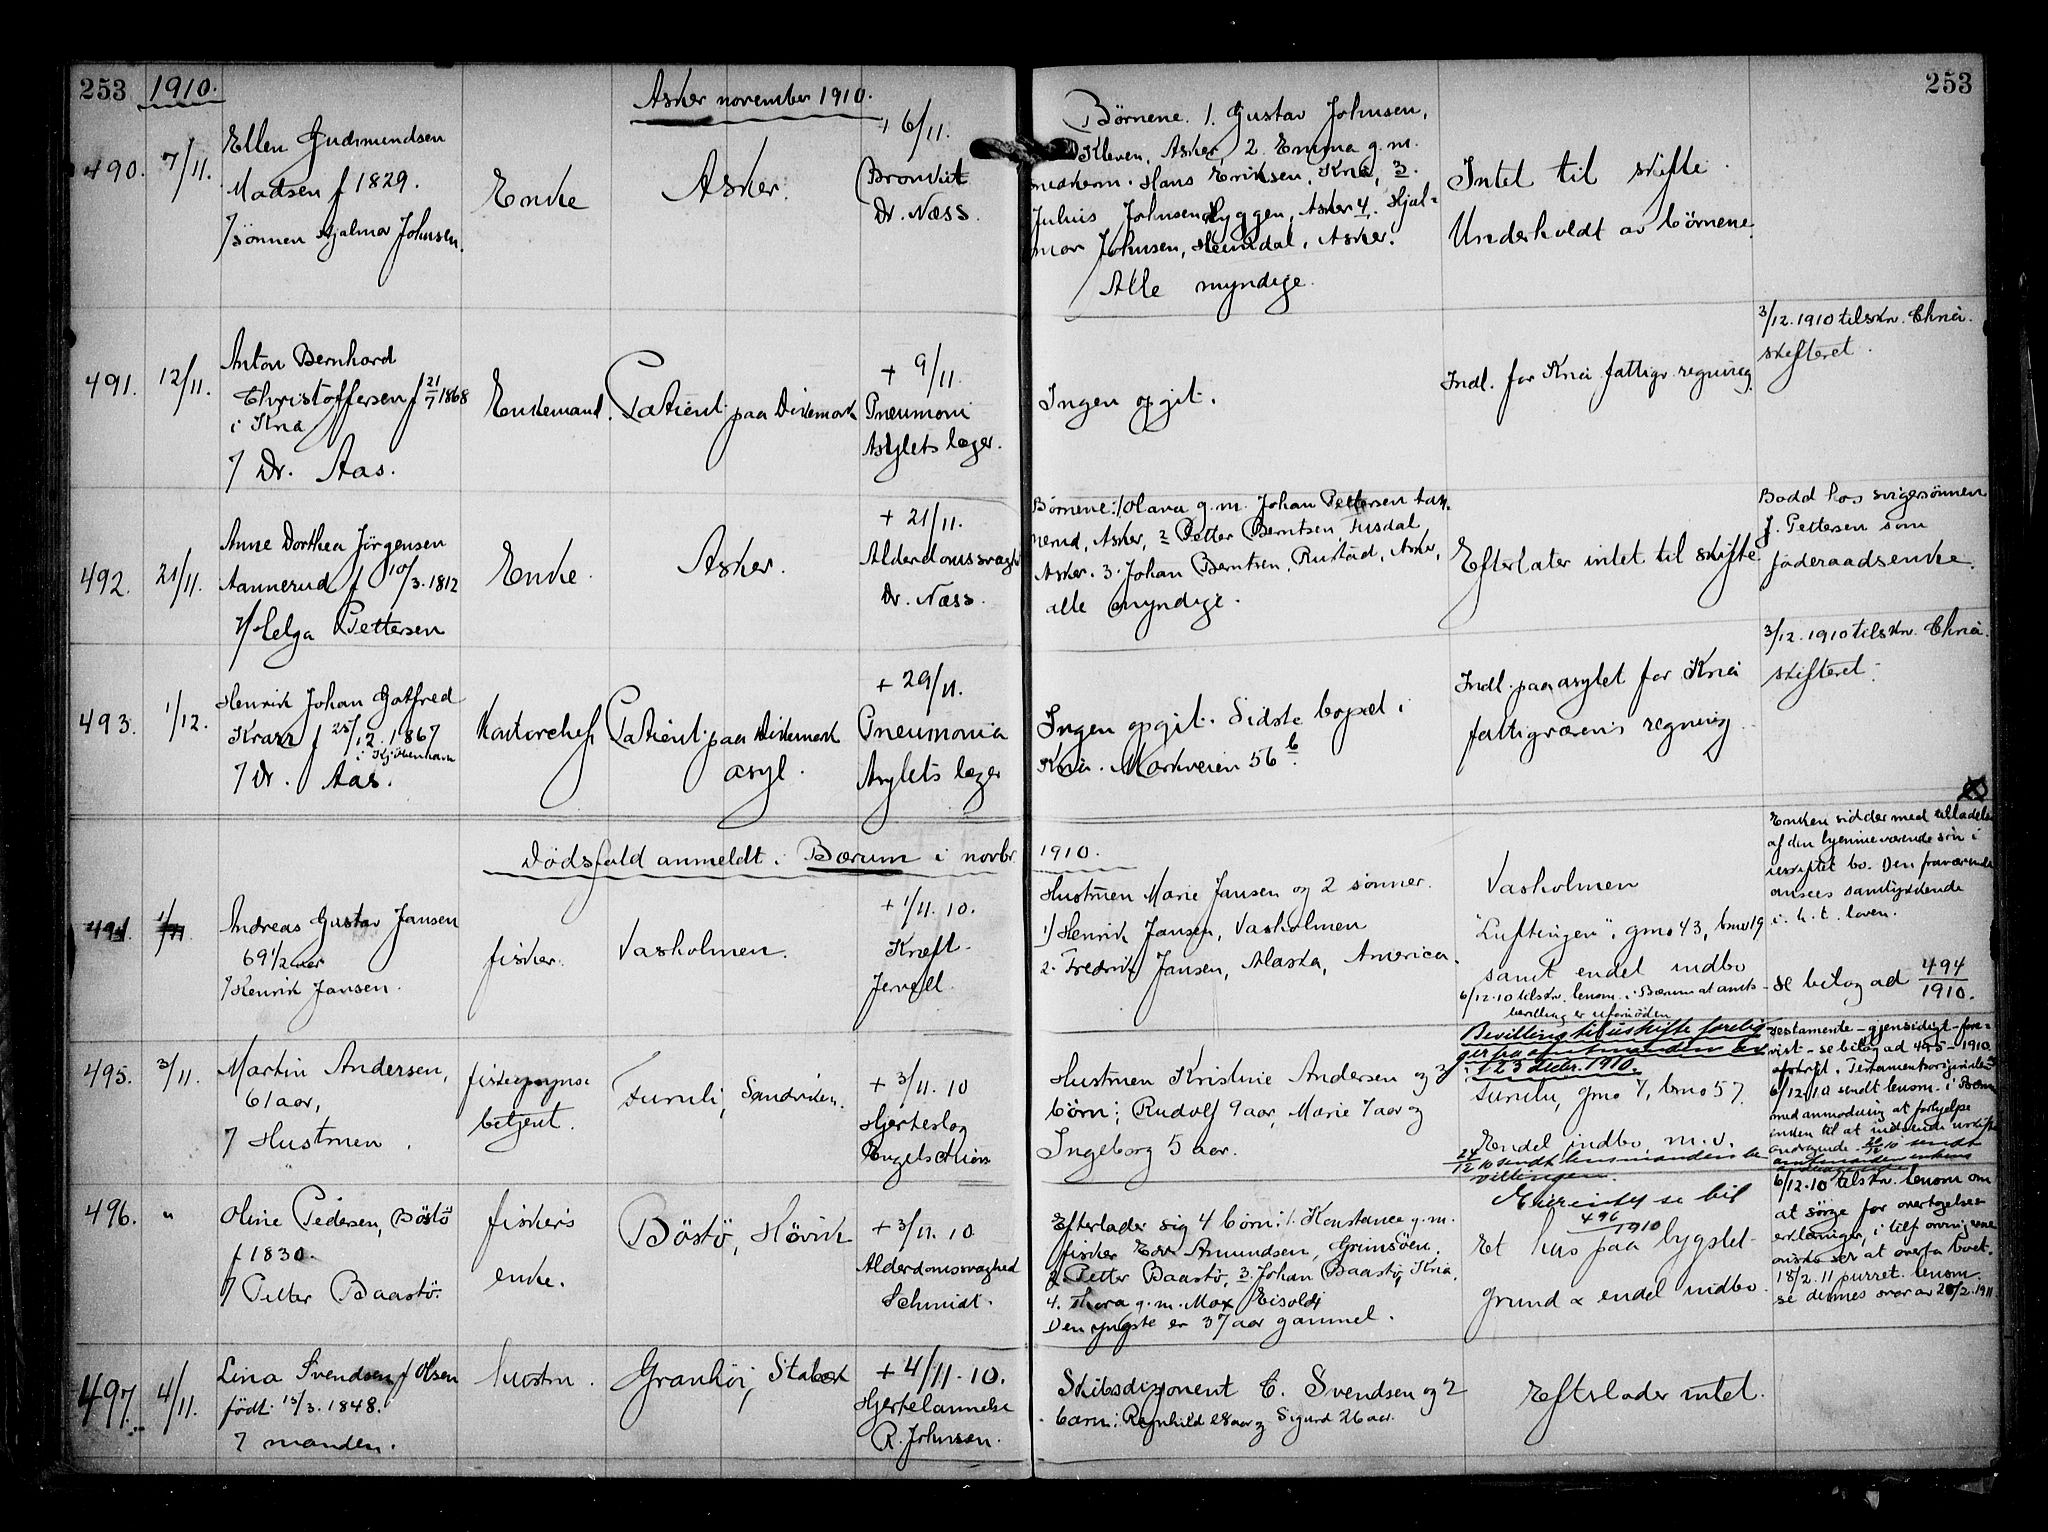 253 1910. Asker november 1910. 253
490. 7/11.
Ellen Gudmundsen
Madsen f 1829.
/sönnen Hjalmar Johnsen.
Enke
Asker.
+ 6/11.
Bronkit
Dr. Næss.
Börnene. 1. Gustav Johnsen,
Kleven, Asker, 2. Emma g.m.
Hans Eriksen, Kria, 3.
Julius Johnsen Hyggen, Asker 4. Hjal-
mar Johnsen, Heimdal, Asker.
Alle myndige.
Intet til skifte.
Underholdt av börnene.
491. 12/11.
Anton Bernhard
Christoffersen f 21/7 1868
i Kria
/ Dr. Aas.
Enkemand.
Patient paa Dikemark
+ 9/11.
Pneumoni
Asylets læger.
Ingen opgit.
Indl. for Kria fattigv. regning.
3/12. 1910 tilskr. Chria.
skifteret.
492. 21/11.
Anne Dorthea Jörgensen
Aannerud f 10/3. 1812
/ Helga Pettersen
Enke.
Asker.
+ 21/11.
Alderdomssvagh
Dr. Næss.
Börnene: 1 Olava g.m. Johan Pettersen Aan-
nerud, Asker, 2 Petter Berntsen, Jusdal,
Asker. 3. Johan Berntsen, Rustad, Asker,
alle myndige.
Efterlater intet til skifte
Bodd hos svigersönnen
J. Pettersen som
föderaadsenke.
493. 1/12.
Henrik Johan Gotfred
Krarr f 25/12. 1867
i Kjöbenhavn
/ Dr. Aas.
Kontorchef
Patient paa Dikemark
asyl.
+ 29/11.
Pneumonia
Asylets læger
Ingen opgit. Sidste bopæl i
Kria. Markveien 56 b.
Indl. paa asylet for Kria
fattigvæsens regning
3/12. 1910 tilskr. Chria.
skifteret.
Dödsfald anmeldt i Bærum i novbr. 1910.
494. 1/11.
Andreas Gustav Jansen
69 1/2 aar
/ Henrik Jansen.
fisker.
Vasholmen.
+ 1/11. 10.
Kræft.
Jervell.
Hustruen Marie Jansen og 2 sönner.
1) Henrik Jansen, Vasholmen
2. Fredrik Jansen, Alaska, America.
Vasholmen
"Luftingen", gno 43, bno 19
samt endel indbo
6/12.10 tilskr. lensm. i Bærum at amts-
bevilling er ufornöden
Enken sidder med tilladelse
af den hjemmeværende sön i
uskiftet bo. Den fraværende
ansees samtykkende
i. h. t. loven.
se bilag ad 494/1910.
495. 3/11.
Martin Andersen,
61 aar,
/ Hustruen.
fiskeopsyns-
betjent.
Furuli, Sandviken.
+ 3/11. 10
Hjerteslag
Engelschiön
Hustruen Kristine Andersen og 3
börn; Rudolf 9 aar, Marie 7 aar og
Ingeborg 5 aar.
Bevilling til uskifte forelig-
ger fra amtmanden av
i 123 decbr. 1910.
Furulu, gno 7, bno 57.
Endel indbo m.v.
24/12 10 sendt lensmanden be-
villingen.
Testamente - gjensidigt - fore-
vist - se bilag ad 495-1910
afskrift. Testamentsoriginalen
6/12.10 sendt lensm. i Bærum
med anmodning at forhjelpe
enken til at indsende uskifte
andragende.
496. "
Oline Pedersen, Böstö
f 1830.
/ Petter Baastö.
fiskers
enke.
Böstö, Hövik
+ 3/11. 10
Alderdomssvaghed
Schmidt.
Efterlader sig 4 börn: 1. Konstance g.m.
fisker Edv Amundsen, Grimsöen.
2. Petter Baastö, 3. Johan Baastö, Kria,
4. Thora g.m. Max Eisoldt
Den yngste er 37 aar gammel.
se bil
496/1910
Et hus paa bygslet
grund & endel indbo.
6/12.10 tilskr. lensm om
at sörge for overtagelses
erklæringer, i tilf arvingerne
önsker at overta boet.
18/2. 11 purret lensm.
se dennes svar av 20/2. 1911
497. 4/11.
Lina Svendsen f Olsen
född. 15/3. 1848.
/ manden.
hustru.
Granhöi, Stabæk
+ 4/11. 10.
Hjertelammelse
R. Johnsen.
Skibsdisponent C. Svendsen og 2
barn: Ragnhild 28 aar og Sigurd 26 aar.
Efterlader intet.